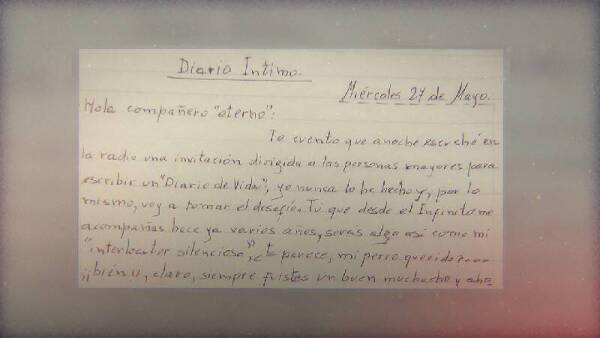 Diario Intimo.
Miércoles 27 de Mayo.
Hola compañero "eterno":
Te cuento que anoche escuché en
la radio una invitación dirigida a las personas mayores para
escribir un "Diario de Vida"; yo nunca lo he hecho y, por lo
mismo, voy a tomar el desafío. Tú que desde el Infinito me
acompañas hace ya varios años, serás algo así como mi
"interlocutor silencioso", ¿te parece, mi perro querido?....
¡¡bién!!, claro, siempre fuistes un buen muchacho y